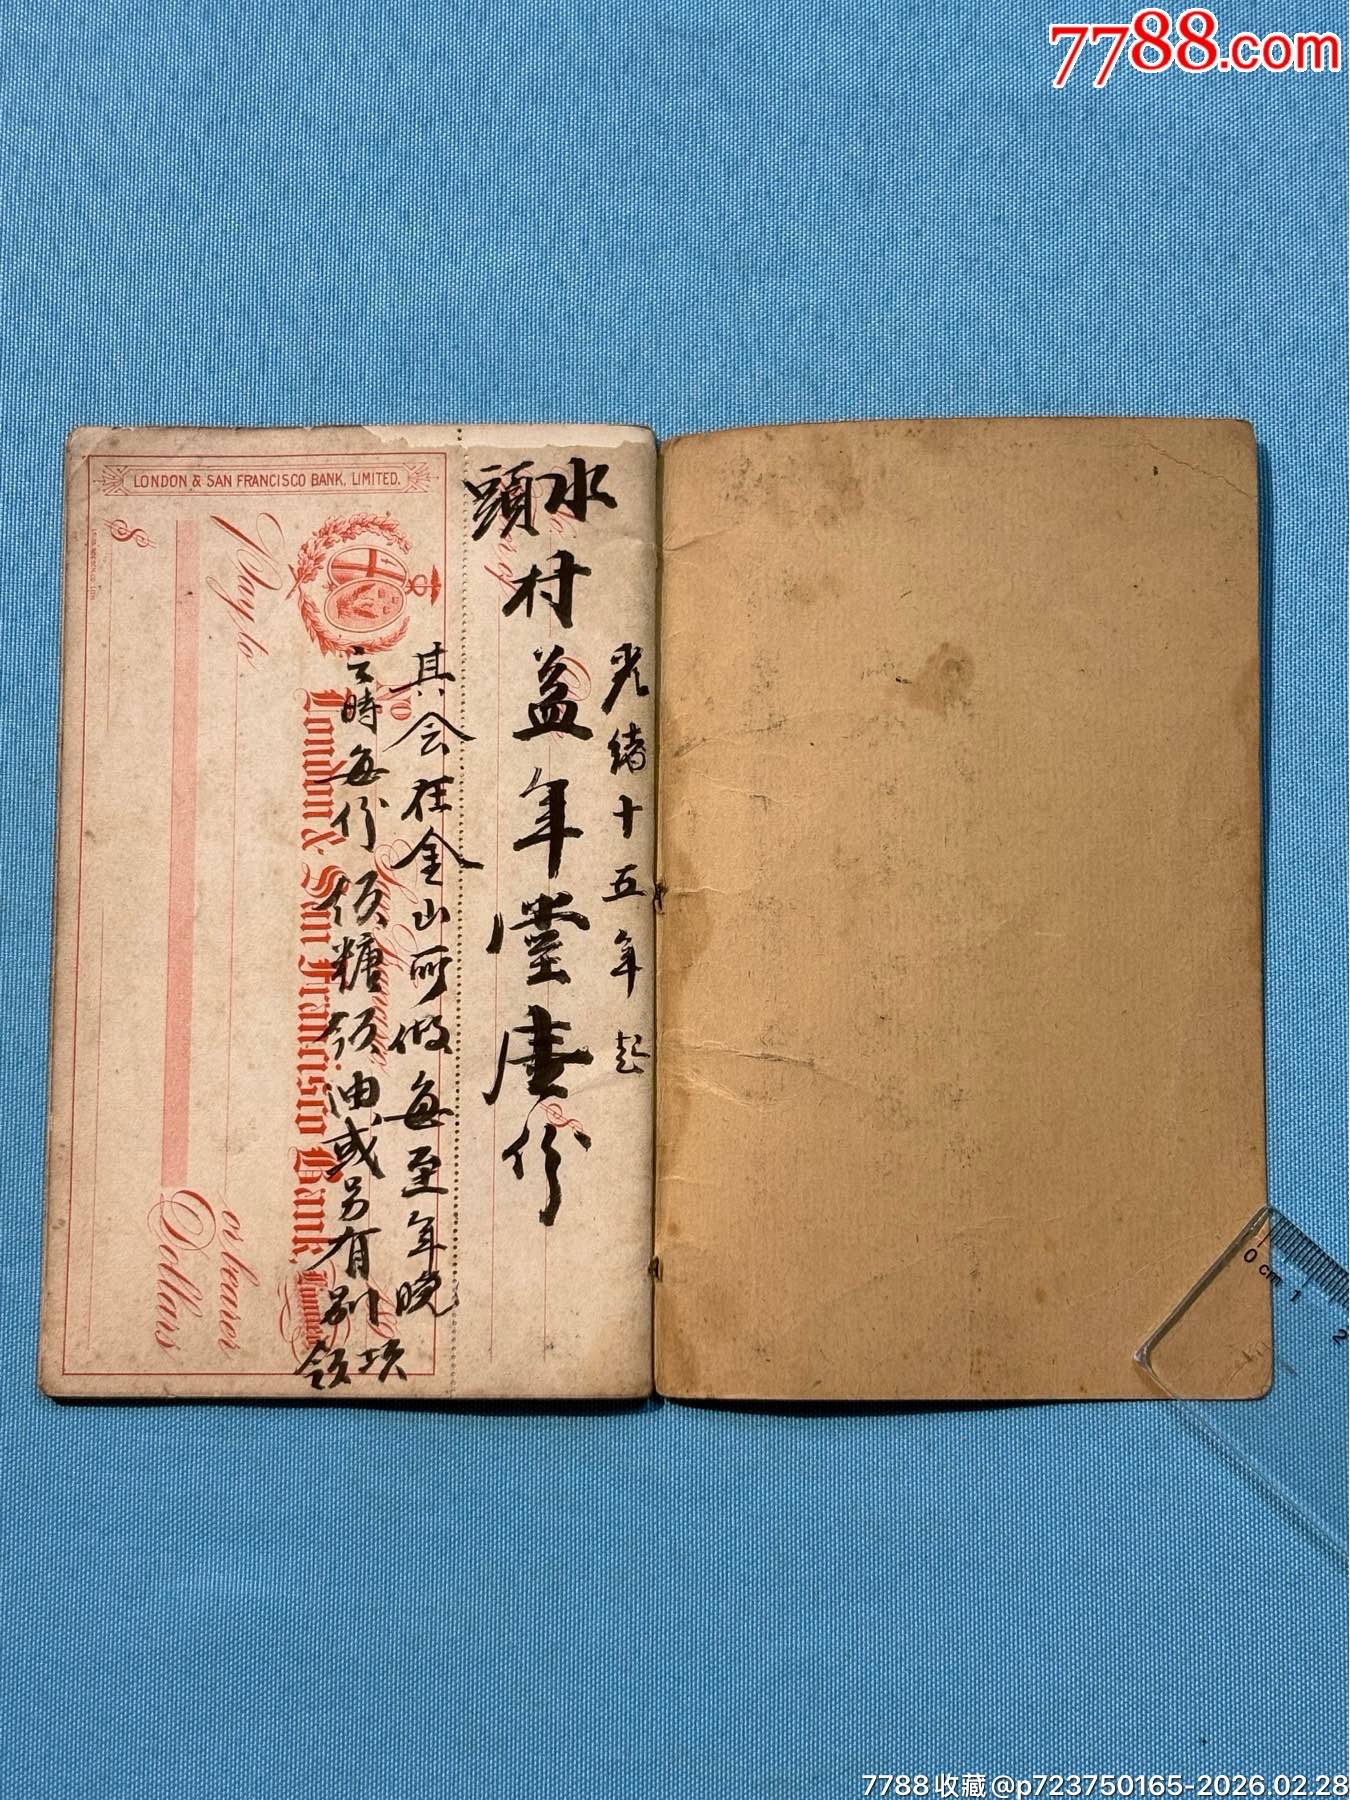 7788.com
光緒十五年起
水頭村益年堂壹份
其会在金山所做每至年晚
之時每份領糖領油或另有別項
領
LONDON & SAN FRANCISCO BANK, LIMITED.
No
$
Pay to
or bearer
Dollars
London & San Francisco Bank, Limited
San Francisco
$
0 cm 1 2
7788收藏@p723750165-2026.02.28